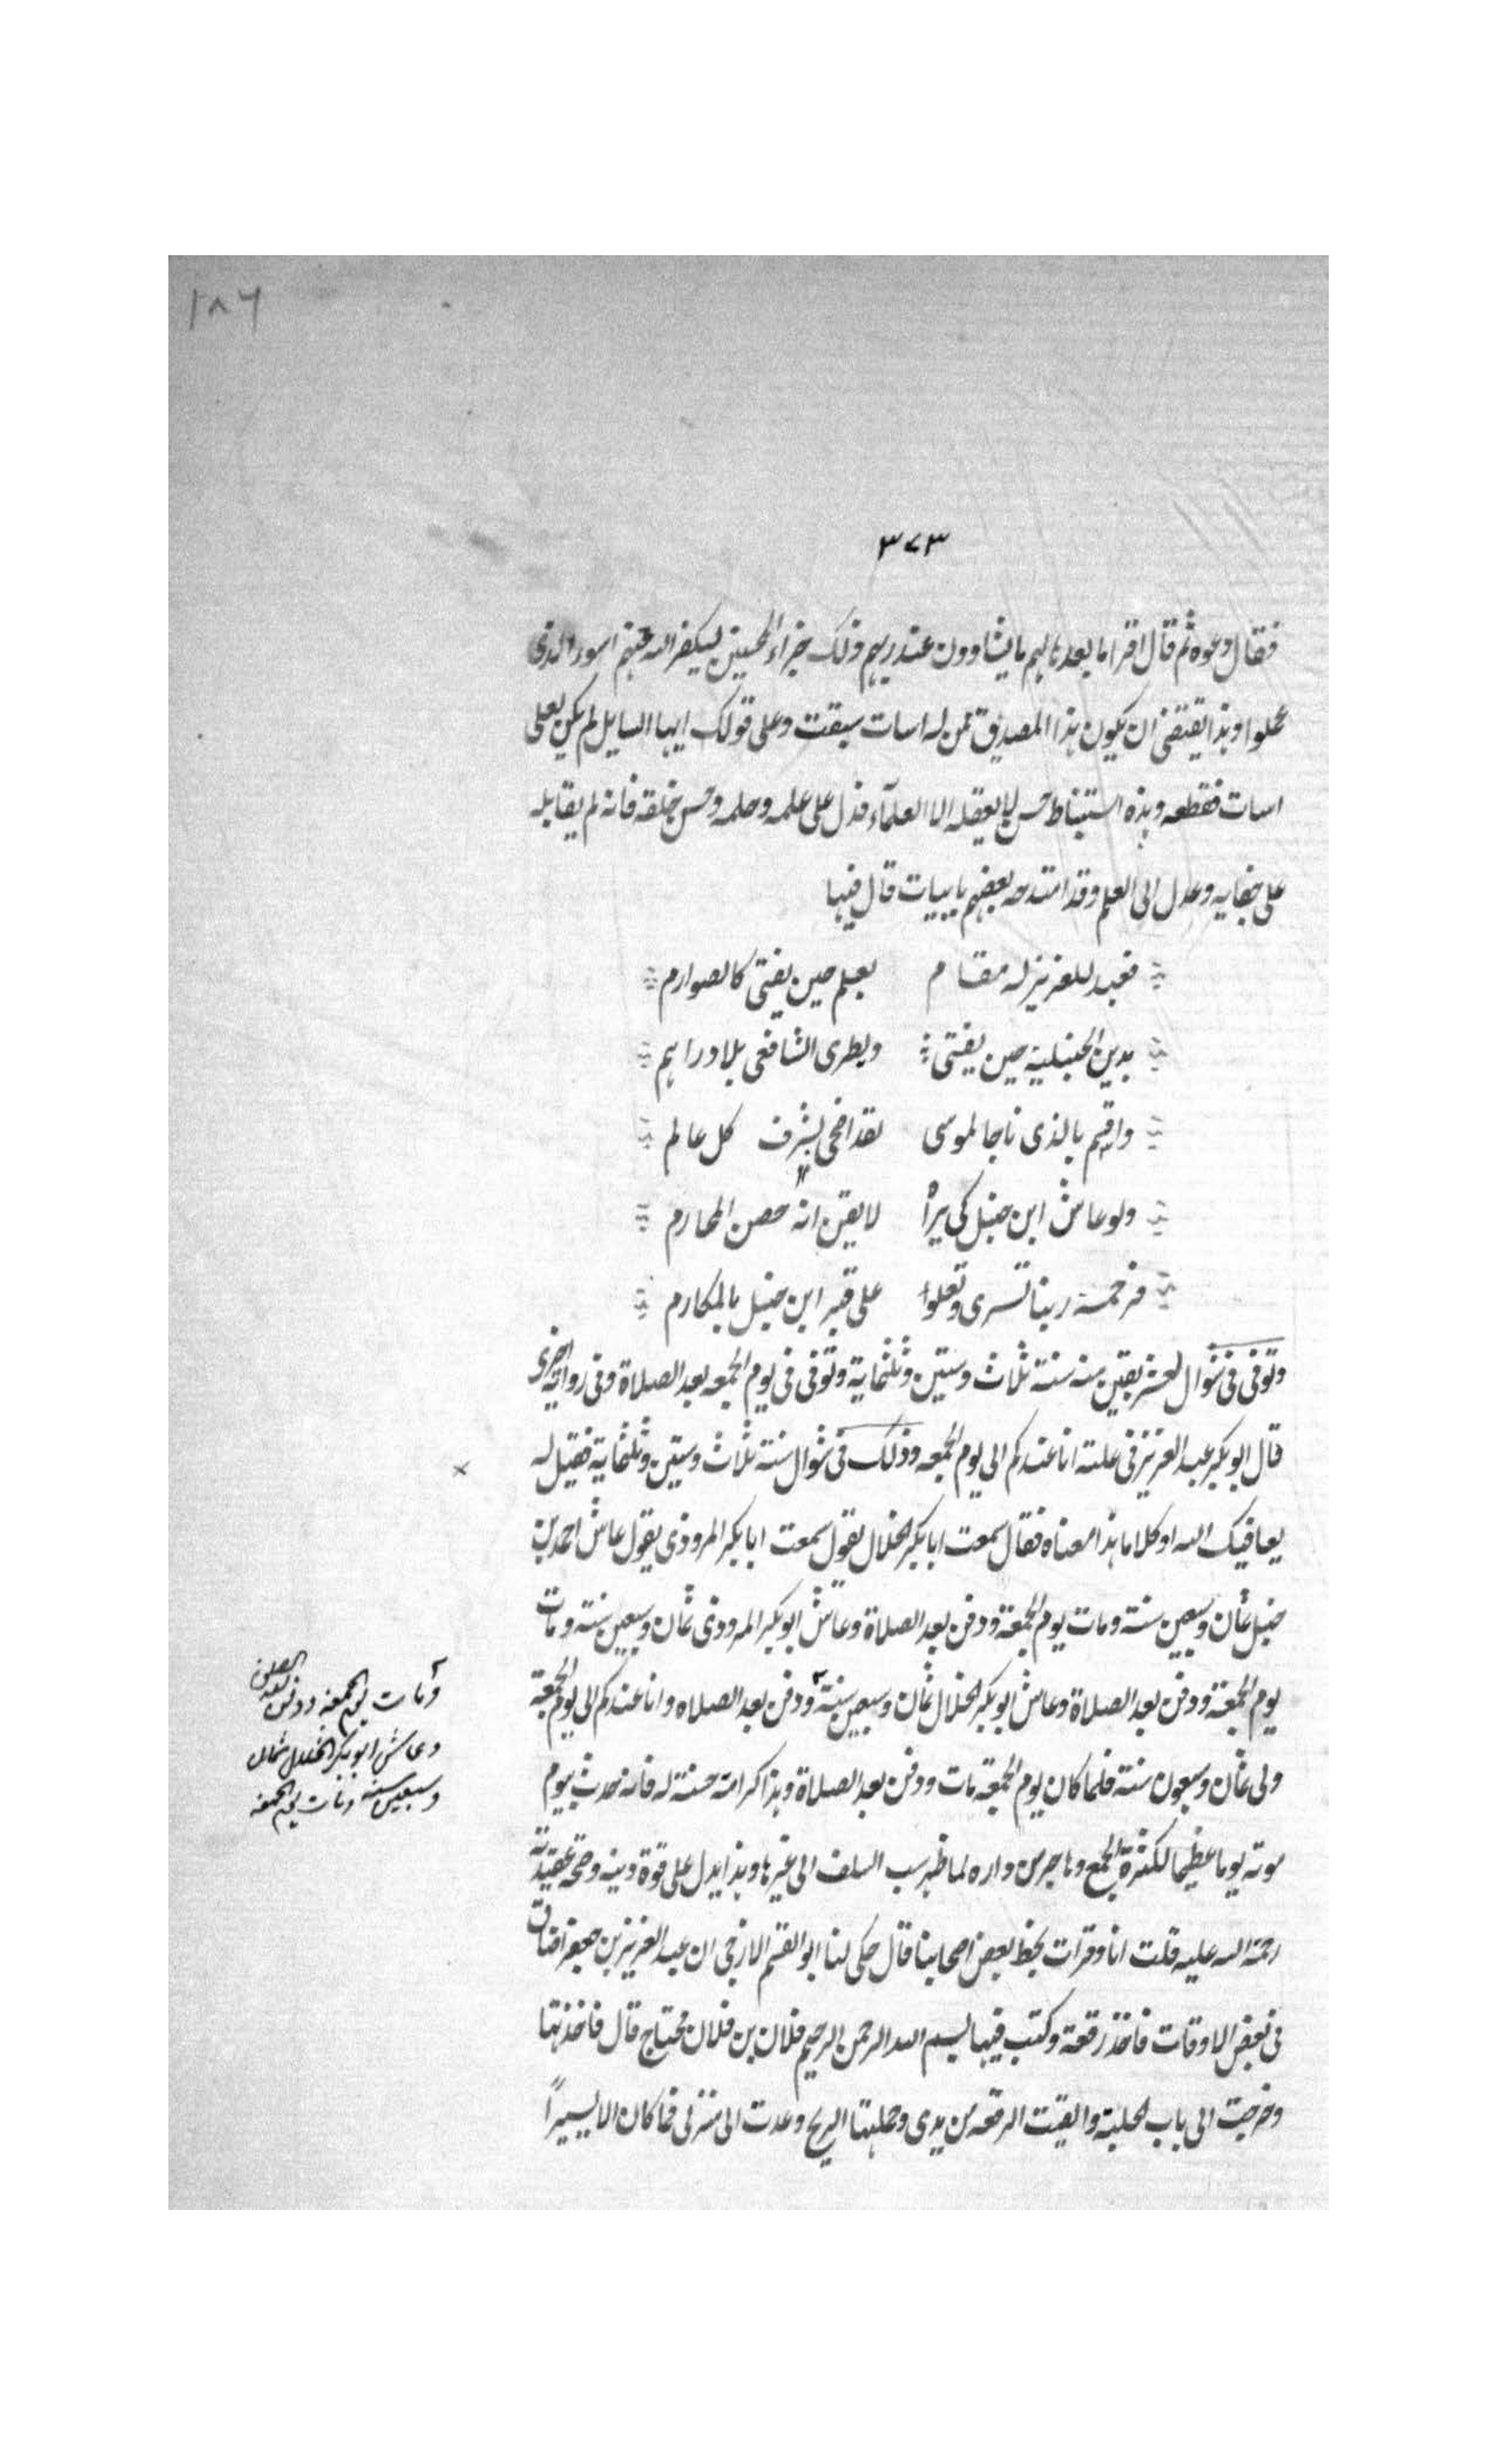 ١٨٦
٣٧٣
فقال دعوه ثم قال اقرا ما بعدها لهم ما يشاوون عند ربهم ذلك جزاء المحسنين ليكفر الله عنهم اسوء الذى
عملوا وهذا يقتضى ان يكون هذا المصدق ممن له اسات سبقت وعلى قولك ايها السايل لم يكن لعلى
اسات فقطعه وهذه استنباط حسن لا يعقله الا العلمآء فدل على علمه وحلمه وحسن خلقه فانه لم يقابله
على جفايه وعدل الى العلم وقد امتدحه بعضهم بابيات قال فيها
فعبد للعزيز له مقام بعلم حين يفتى كالصوارم
بدين الحنبلية حين يفتى ويطرى الشافعى بلا دراهم
واقسم بالذى ناجا لموسى لقد اضحى يشرف كل عالم
ولو عاش ابن حنبل كى يراه لايقن انه حصن المحارم
فرحمة ربنا تسرى وتعلوا على قبر ابن حنبل بالمكارم
وتوفى فى شوال لعشر بقين منه سنة ثلاث وستين وثلثماية وتوفى فى يوم الجمعه بعد الصلاة وفى رواية اخرى
قال ابو بكر عبد العزيز فى علته انا عندكم الى يوم الجمعه وذلك فى شوال سنة ثلاث وستين وثلثماية فقيل له
يعافيك الله او كلاما هذا معناه فقال سمعت ابا بكر الخلال يقول سمعت ابا بكر المروذى يقول عاش احمد بن
حنبل ثمان وسبعين سنة ومات يوم الجمعة ودفن بعد الصلاة وعاش ابو بكر المروذى ثمان وسبعين سنة ومات
يوم الجمعة ودفن بعد الصلاة وعاش ابو بكر الخلال ثمان وسبعين سنة ودفن بعد الصلاه وانا عندكم الى يوم الجمعة
ولى ثمان وسبعون سنة فلما كان يوم الجمعة مات ودفن بعد الصلاة وهذا كرامة حسنة له فانه حدث بيوم
موته يوما عظيما لكثرة الجمع وهاجر من داره لما ظهر سب السلف الى غيرها وهذا يدل على قوة دينه وصحة عقيدته
رحمة الله عليه قلت انا وقرات بخط بعض اصحابنا قال حكى لنا ابو القسم الازجى ان عبد العزيز بن جعفر اضاق
فى بعض الاوقات فاخذ رقعة وكتب فيها بسم الله الرحمن الرحيم فلان بن فلان محتاج قال فاخذتها
وخرجت الى باب الحلبة والقيت الرقعه من يدى وحملتها الريح وعدت الى منزلى فما كان الا يسيراً
ومات يوم الجمعة ودفن بعد الصلوة
وعاش ابو بكر الخلال ثمان
وسبعين سنة ومات يوم الجمعه